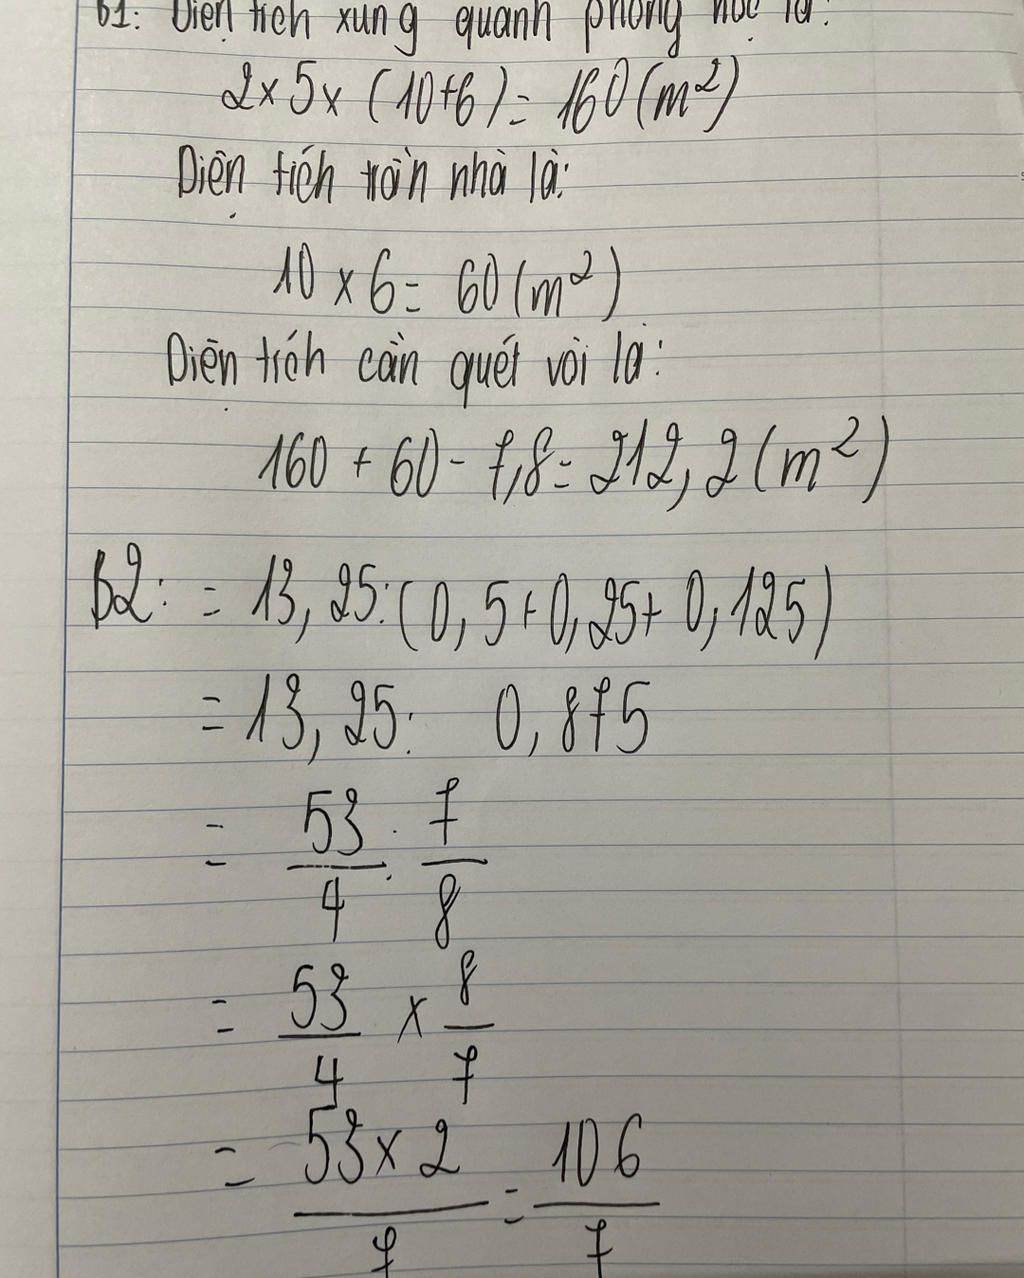 B1: Diện tích xung quanh phòng học là:
2 x 5 x (10+6) = 160 (m²)
Diện tích trần nhà là:
10 x 6 = 60 (m²)
Diện tích cần quét vôi là:
160 + 60 - 7,8 = 212,2 (m²)
B2: = 13,25 : (0,5 + 0,25 + 0,125)
= 13,25 : 0,875
= 53/4 : 7/8
= 53/4 x 8/7
= 53 x 2/7 = 106/7